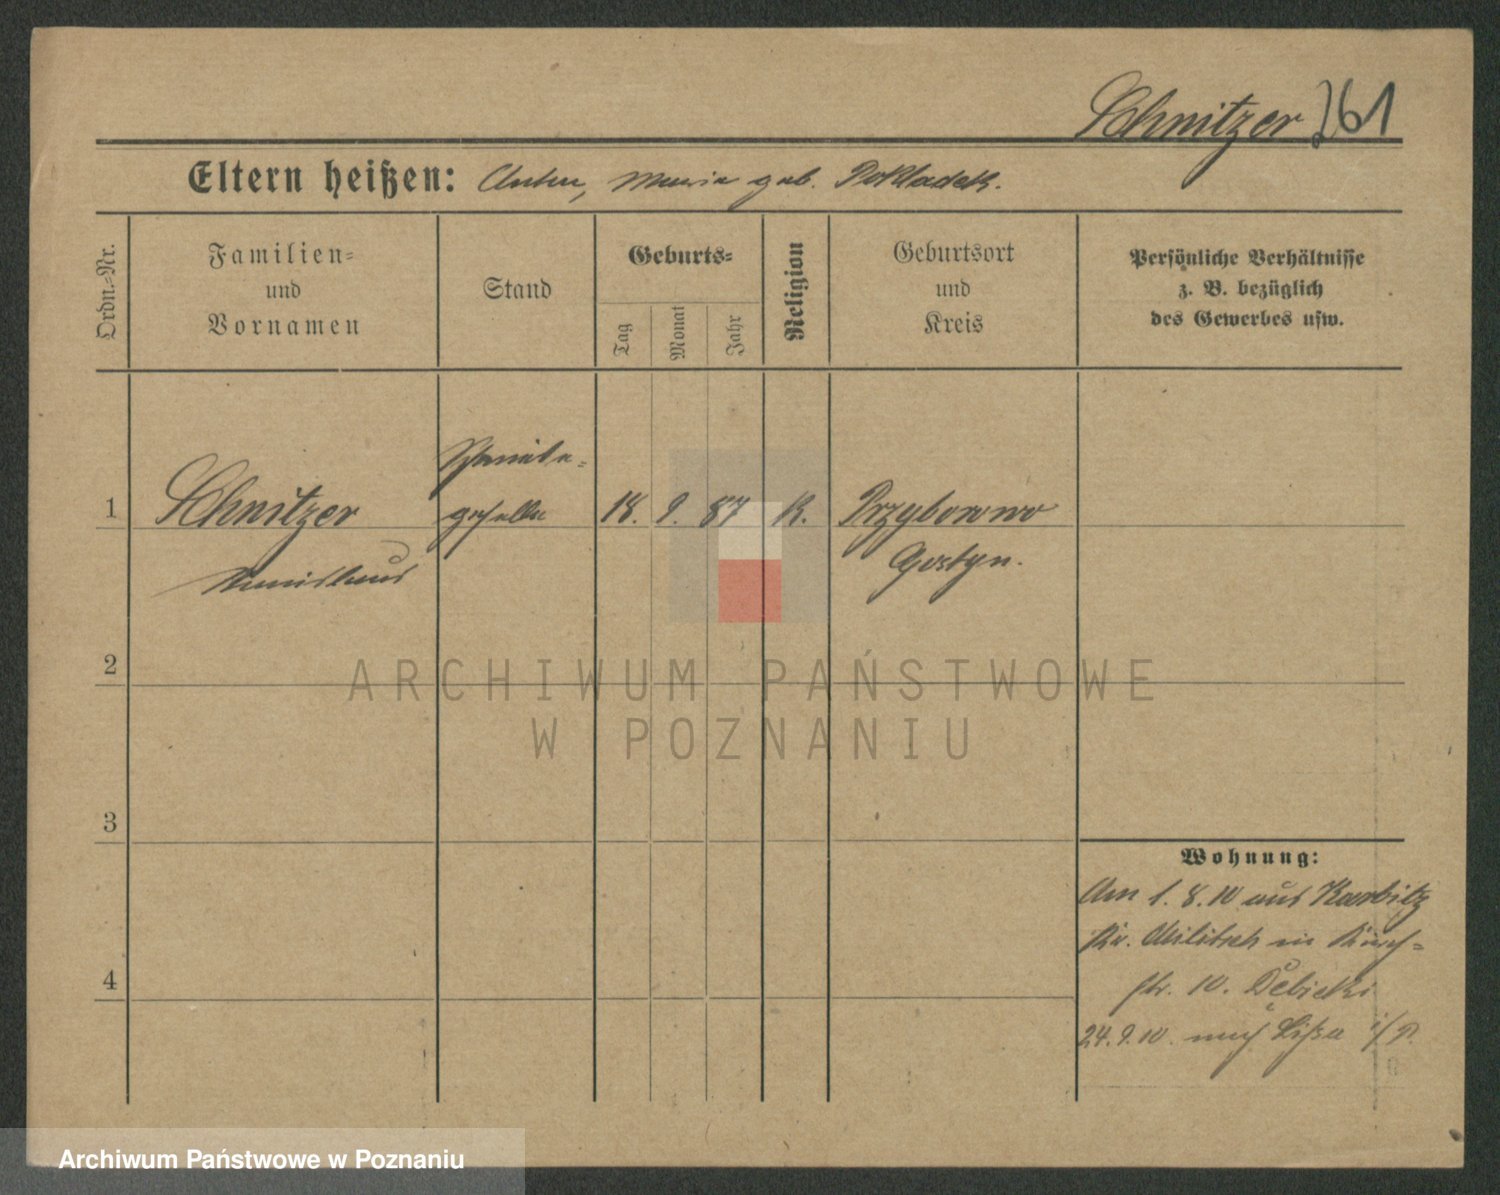 Schnitzer 261
Eltern heißen: Anton, Maria geb. Pokladek.
Ordn.-Nr.
Familien-
und
Vornamen
Stand
Geburts-
Tag
Monat
Jahr
Religion
Geburtsort
und
Kreis
Persönliche Verhältnisse
z. B. bezüglich
des Gewerbes usw.
1
Schnitzer
Stanislaus
Schmiede-
geselle
18. 9. 87
K.
Przyborowo
Gostyn.
2
ARCHIWUM PAŃSTWOWE
W POZNANIU
3
4
Wohnung:
Am 1. 8. 10 aus Karbitz
Kr. Militsch in
str. 10. Dębicki
24. 9. 10. nach Lissa i/P.
Archiwum Państwowe w Poznaniu